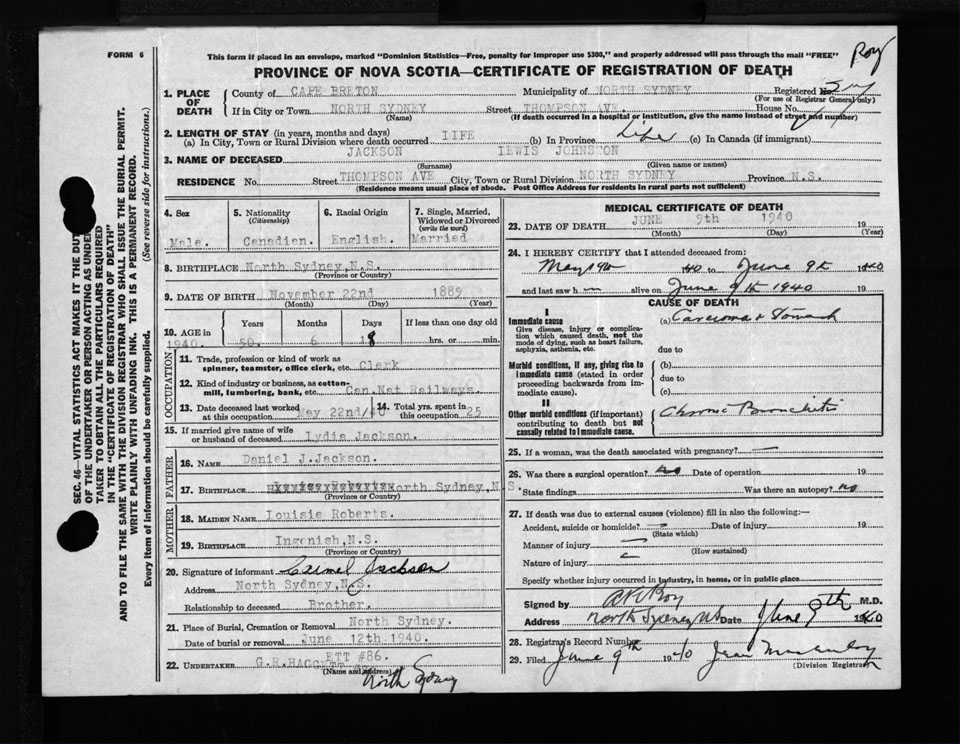 FORM 6
This form if placed in an envelope, marked "Dominion Statistics—Free, penalty for improper use $300," and properly addressed will pass through the mail "FREE"
Roy
PROVINCE OF NOVA SCOTIA—CERTIFICATE OF REGISTRATION OF DEATH
1. PLACE OF DEATH
County of CAPE BRETON Municipality of NORTH SYDNEY Registered No.
(For use of Registrar General only)
If in City or Town NORTH SYDNEY Street THOMPSON AVE. House No.
(Name) (If death occurred in a hospital or institution, give the name instead of street and number)
2. LENGTH OF STAY (in years, months and days)
(a) In City, Town or Rural Division where death occurred LIFE (b) In Province Life (c) In Canada (if immigrant)
3. NAME OF DECEASED JACKSON LEWIS JOHNSTON
(Surname) (Given name or names)
RESIDENCE No. Street THOMPSON AVE City, Town or Rural Division NORTH SYDNEY Province N.S.
(Residence means usual place of abode. Post Office Address for residents in rural parts not sufficient)
4. Sex Male.
5. Nationality (Citizenship) Canadian.
6. Racial Origin English.
7. Single, Married, Widowed or Divorced (write the word) Married
8. BIRTHPLACE North Sydney, N.S.
(Province or Country)
9. DATE OF BIRTH November 22nd 1889
(Month) (Day) (Year)
10. AGE in 1940. Years 50. Months 6 Days 18 If less than one day old hrs. or min.
OCCUPATION
11. Trade, profession or kind of work as spinner, teamster, office clerk, etc. Clerk
12. Kind of industry or business, as cotton-mill, lumbering, bank, etc. Can.Nat Railways.
13. Date deceased last worked at this occupation May 22nd/40 14. Total yrs. spent in this occupation 25
15. If married give name of wife or husband of deceased Lydia Jackson.
FATHER
16. NAME Daniel J.Jackson.
17. BIRTHPLACE North Sydney,N.S.
(Province or Country)
MOTHER
18. MAIDEN NAME Louisie Roberts.
19. BIRTHPLACE Ingonish,N.S.
(Province or Country)
20. Signature of informant Jackson
Address North Sydney,N.S.
Relationship to deceased Brother.
21. Place of Burial, Cremation or Removal North Sydney.
Date of burial or removal June 12th 1940.
22. UNDERTAKER G.R.HAGGETT #86.
(Name and address)
North Sydney
MEDICAL CERTIFICATE OF DEATH
23. DATE OF DEATH JUNE 9th 1940 19
(Month) (Day) (Year)
24. I HEREBY CERTIFY that I attended deceased from:
May 19th 1940 to June 9th 1940
and last saw h m alive on June 9th 1940 19
CAUSE OF DEATH
I
Immediate cause
Give disease, injury or complication which caused death, not the mode of dying, such as heart failure, asphyxia, asthenia, etc.
(a) Carcinoma of Stomach
due to
Morbid conditions, if any, giving rise to immediate cause (stated in order proceeding backwards from immediate cause).
(b)
due to
(c)
II
Other morbid conditions (if important) contributing to death but not causally related to immediate cause.
Chronic Bronchitis
25. If a woman, was the death associated with pregnancy? —
26. Was there a surgical operation? no Date of operation 19
State findings Was there an autopsy? no
27. If death was due to external causes (violence) fill in also the following:—
Accident, suicide or homicide? Date of injury 19
(State which)
Manner of injury
(How sustained)
Nature of injury
Specify whether injury occurred in industry, in home, or in public place
Signed by Roy M.D.
Address North Sydney NS Date June 9th 1940
28. Registrar's Record Number
29. Filed June 9th 1940 Jean
(Division Registrar)
SEC. 46—VITAL STATISTICS ACT MAKES IT THE DUTY
OF THE UNDERTAKER OR PERSON ACTING AS UNDERTAKER
TO OBTAIN ALL THE PARTICULARS REQUIRED
IN THE "CERTIFICATE OF REGISTRATION OF DEATH"
AND TO FILE THE SAME WITH THE DIVISION REGISTRAR WHO SHALL ISSUE THE BURIAL PERMIT.
WRITE PLAINLY WITH UNFADING INK. THIS IS A PERMANENT RECORD.
Every item of information should be carefully supplied. (See reverse side for instructions.)